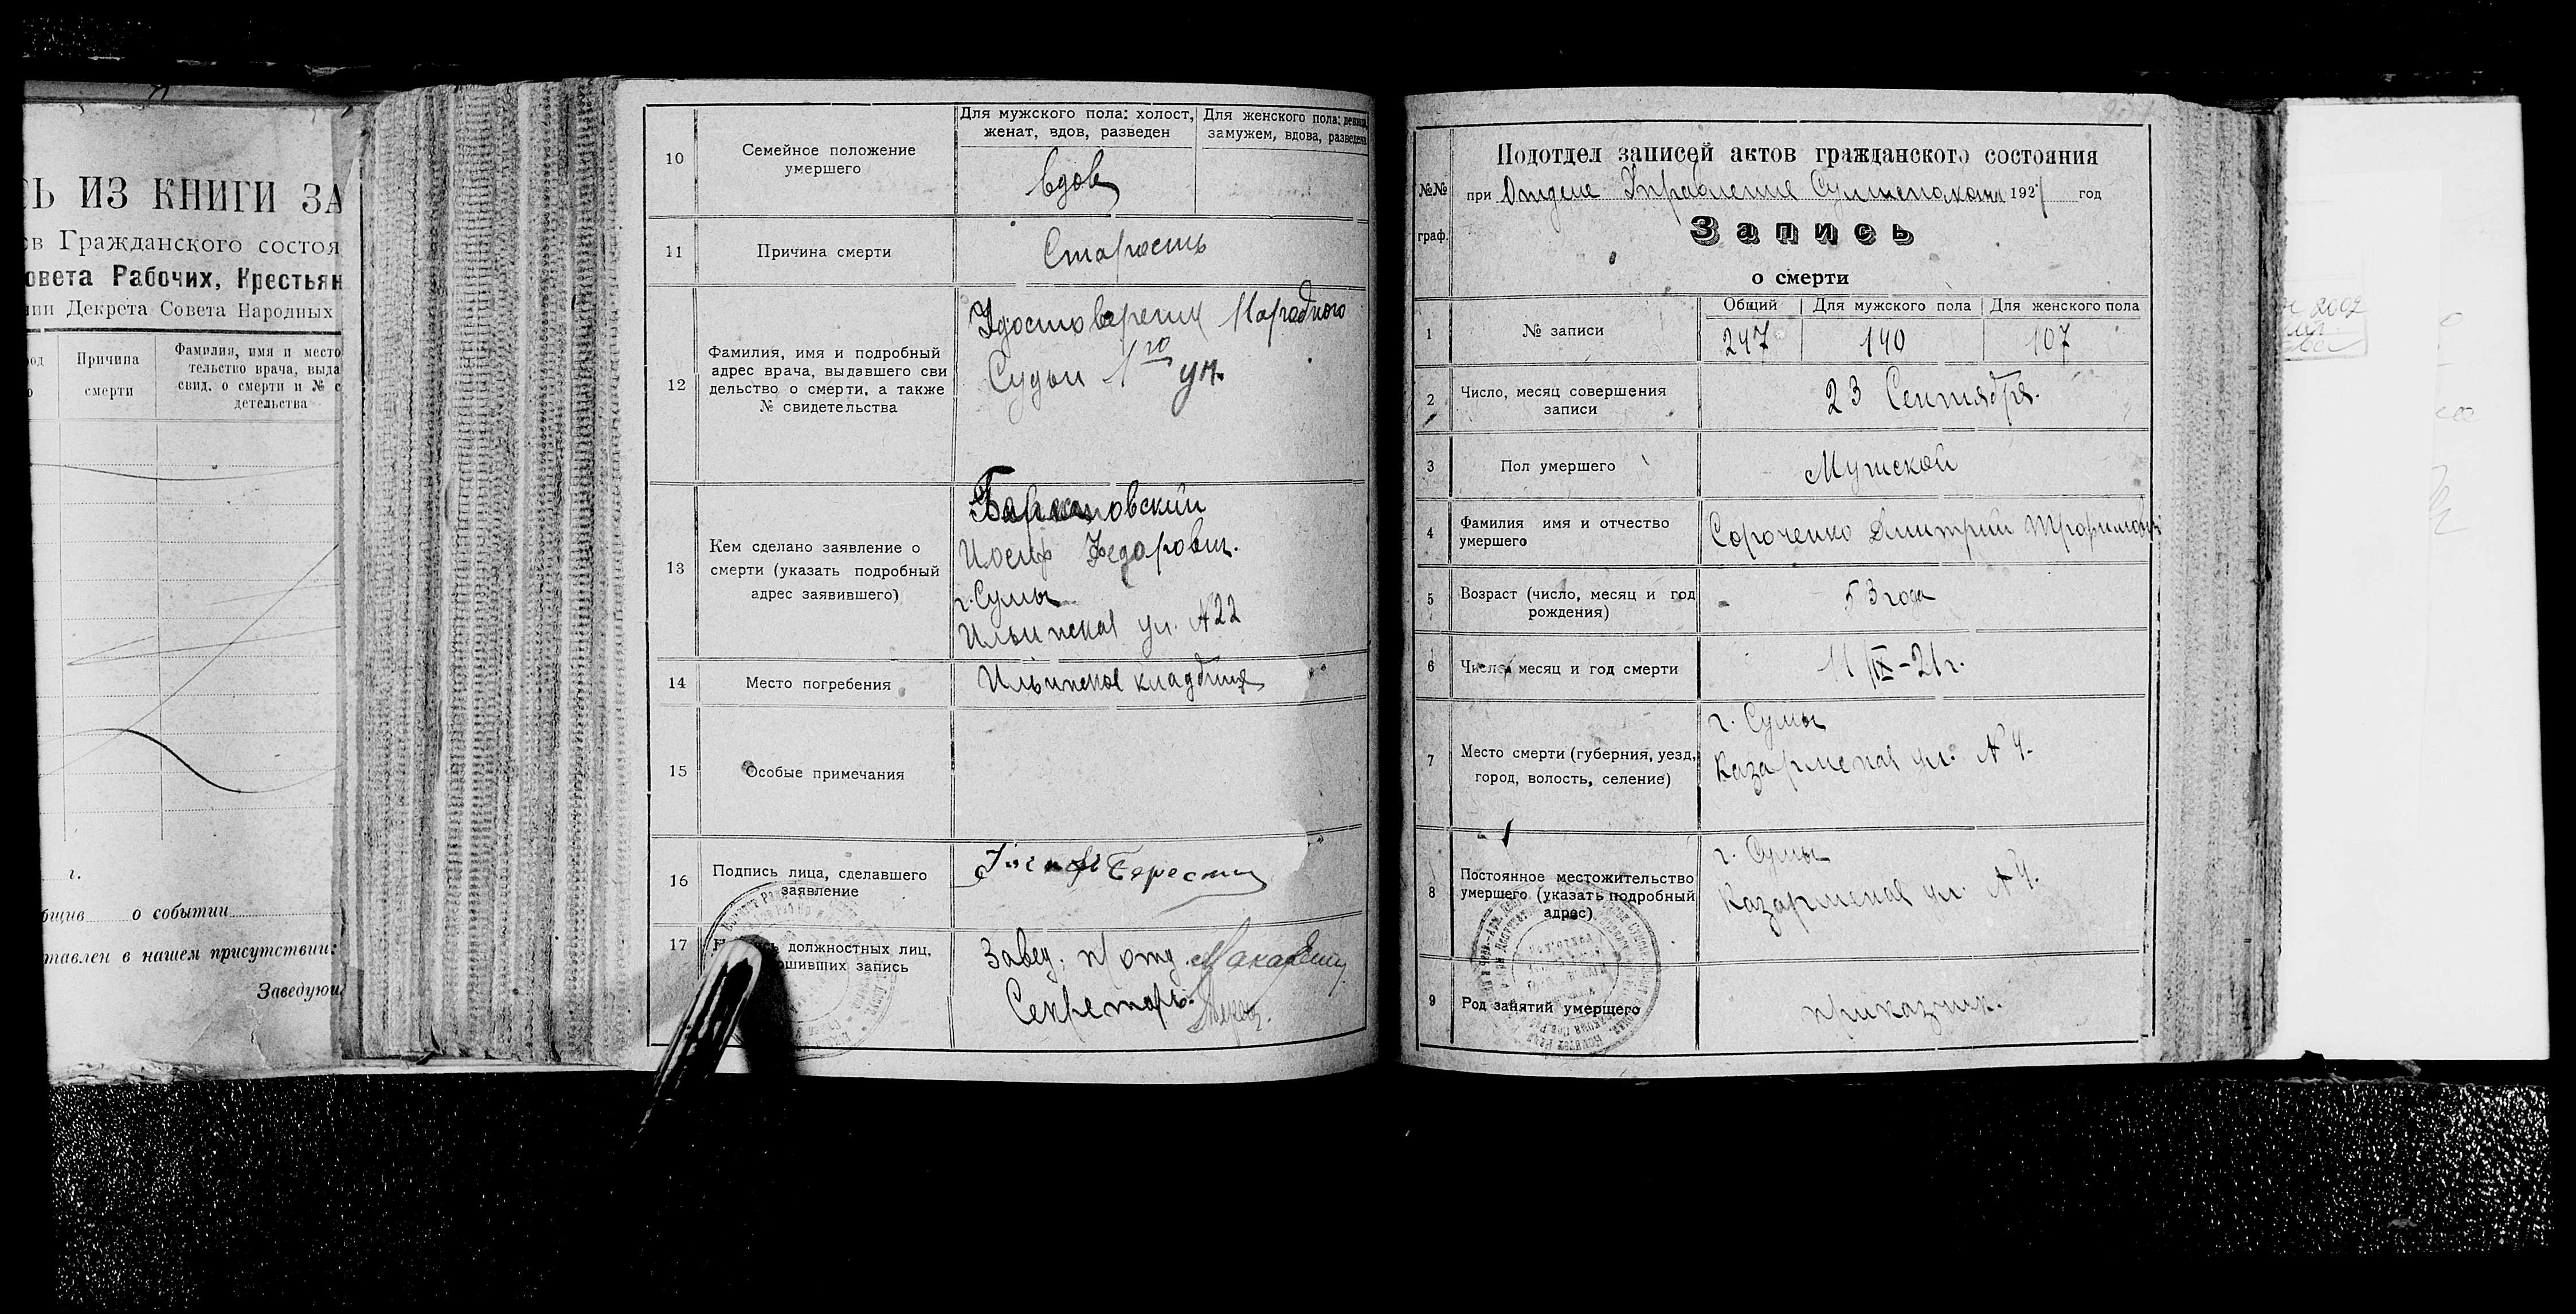 Ь ИЗ КНИГИ ЗА
ов Гражданского состоя
овета Рабочих, Крестьян
нии Декрета Совета Народных
од
Причина
смерти
Фамилия, имя и место
тельство врача, выда
свид. о смерти и № с
детельства
г.
бщив о событии
тавлен в нашем присутствии:
Заведующ
10
Семейное положение
умершего
Для мужского пола: холост,
женат, вдов, разведен
Для женского пола: девица,
замужем, вдова, разведена
вдов
11
Причина смерти
Старость
12
Фамилия, имя и подробный
адрес врача, выдавшего сви
дельство о смерти, а также
№ свидетельства
Удостоверения Народного
Судьи 1го уч.
13
Кем сделано заявление о
смерти (указать подробный
адрес заявившего)
Иосиф Федорович.
г. Сумы
Ильинская ул. № 22
14
Место погребения
Ильинское кладбище
15
Особые примечания
16
Подпись лица, сделавшего
заявление
17
должностных лиц,
ршивших запись
Завед. п/отд.
Секретарь
№№
граф.
Подотдел записей актов гражданского состояния
при Отделе Управления 1921 год
Запись
о смерти
1
№ записи
Общий
Для мужского пола
Для женского пола
247
140
107
2
Число, месяц совершения
записи
23 Сентября.
3
Пол умершего
Мужской
4
Фамилия имя и отчество
умершего
Сороченко Дмитрий Трофимович
5
Возраст (число, месяц и год
рождения)
53 года
6
Число, месяц и год смерти
11/IX-21г.
7
Место смерти (губерния, уезд,
город, волость, селение)
г. Сумы
Казарменая ул. № 4.
8
Постоянное местожительство
умершего (указать подробный
адрес)
г. Сумы
Казарменая ул. № 4.
9
Род занятий умершего
приказчик.